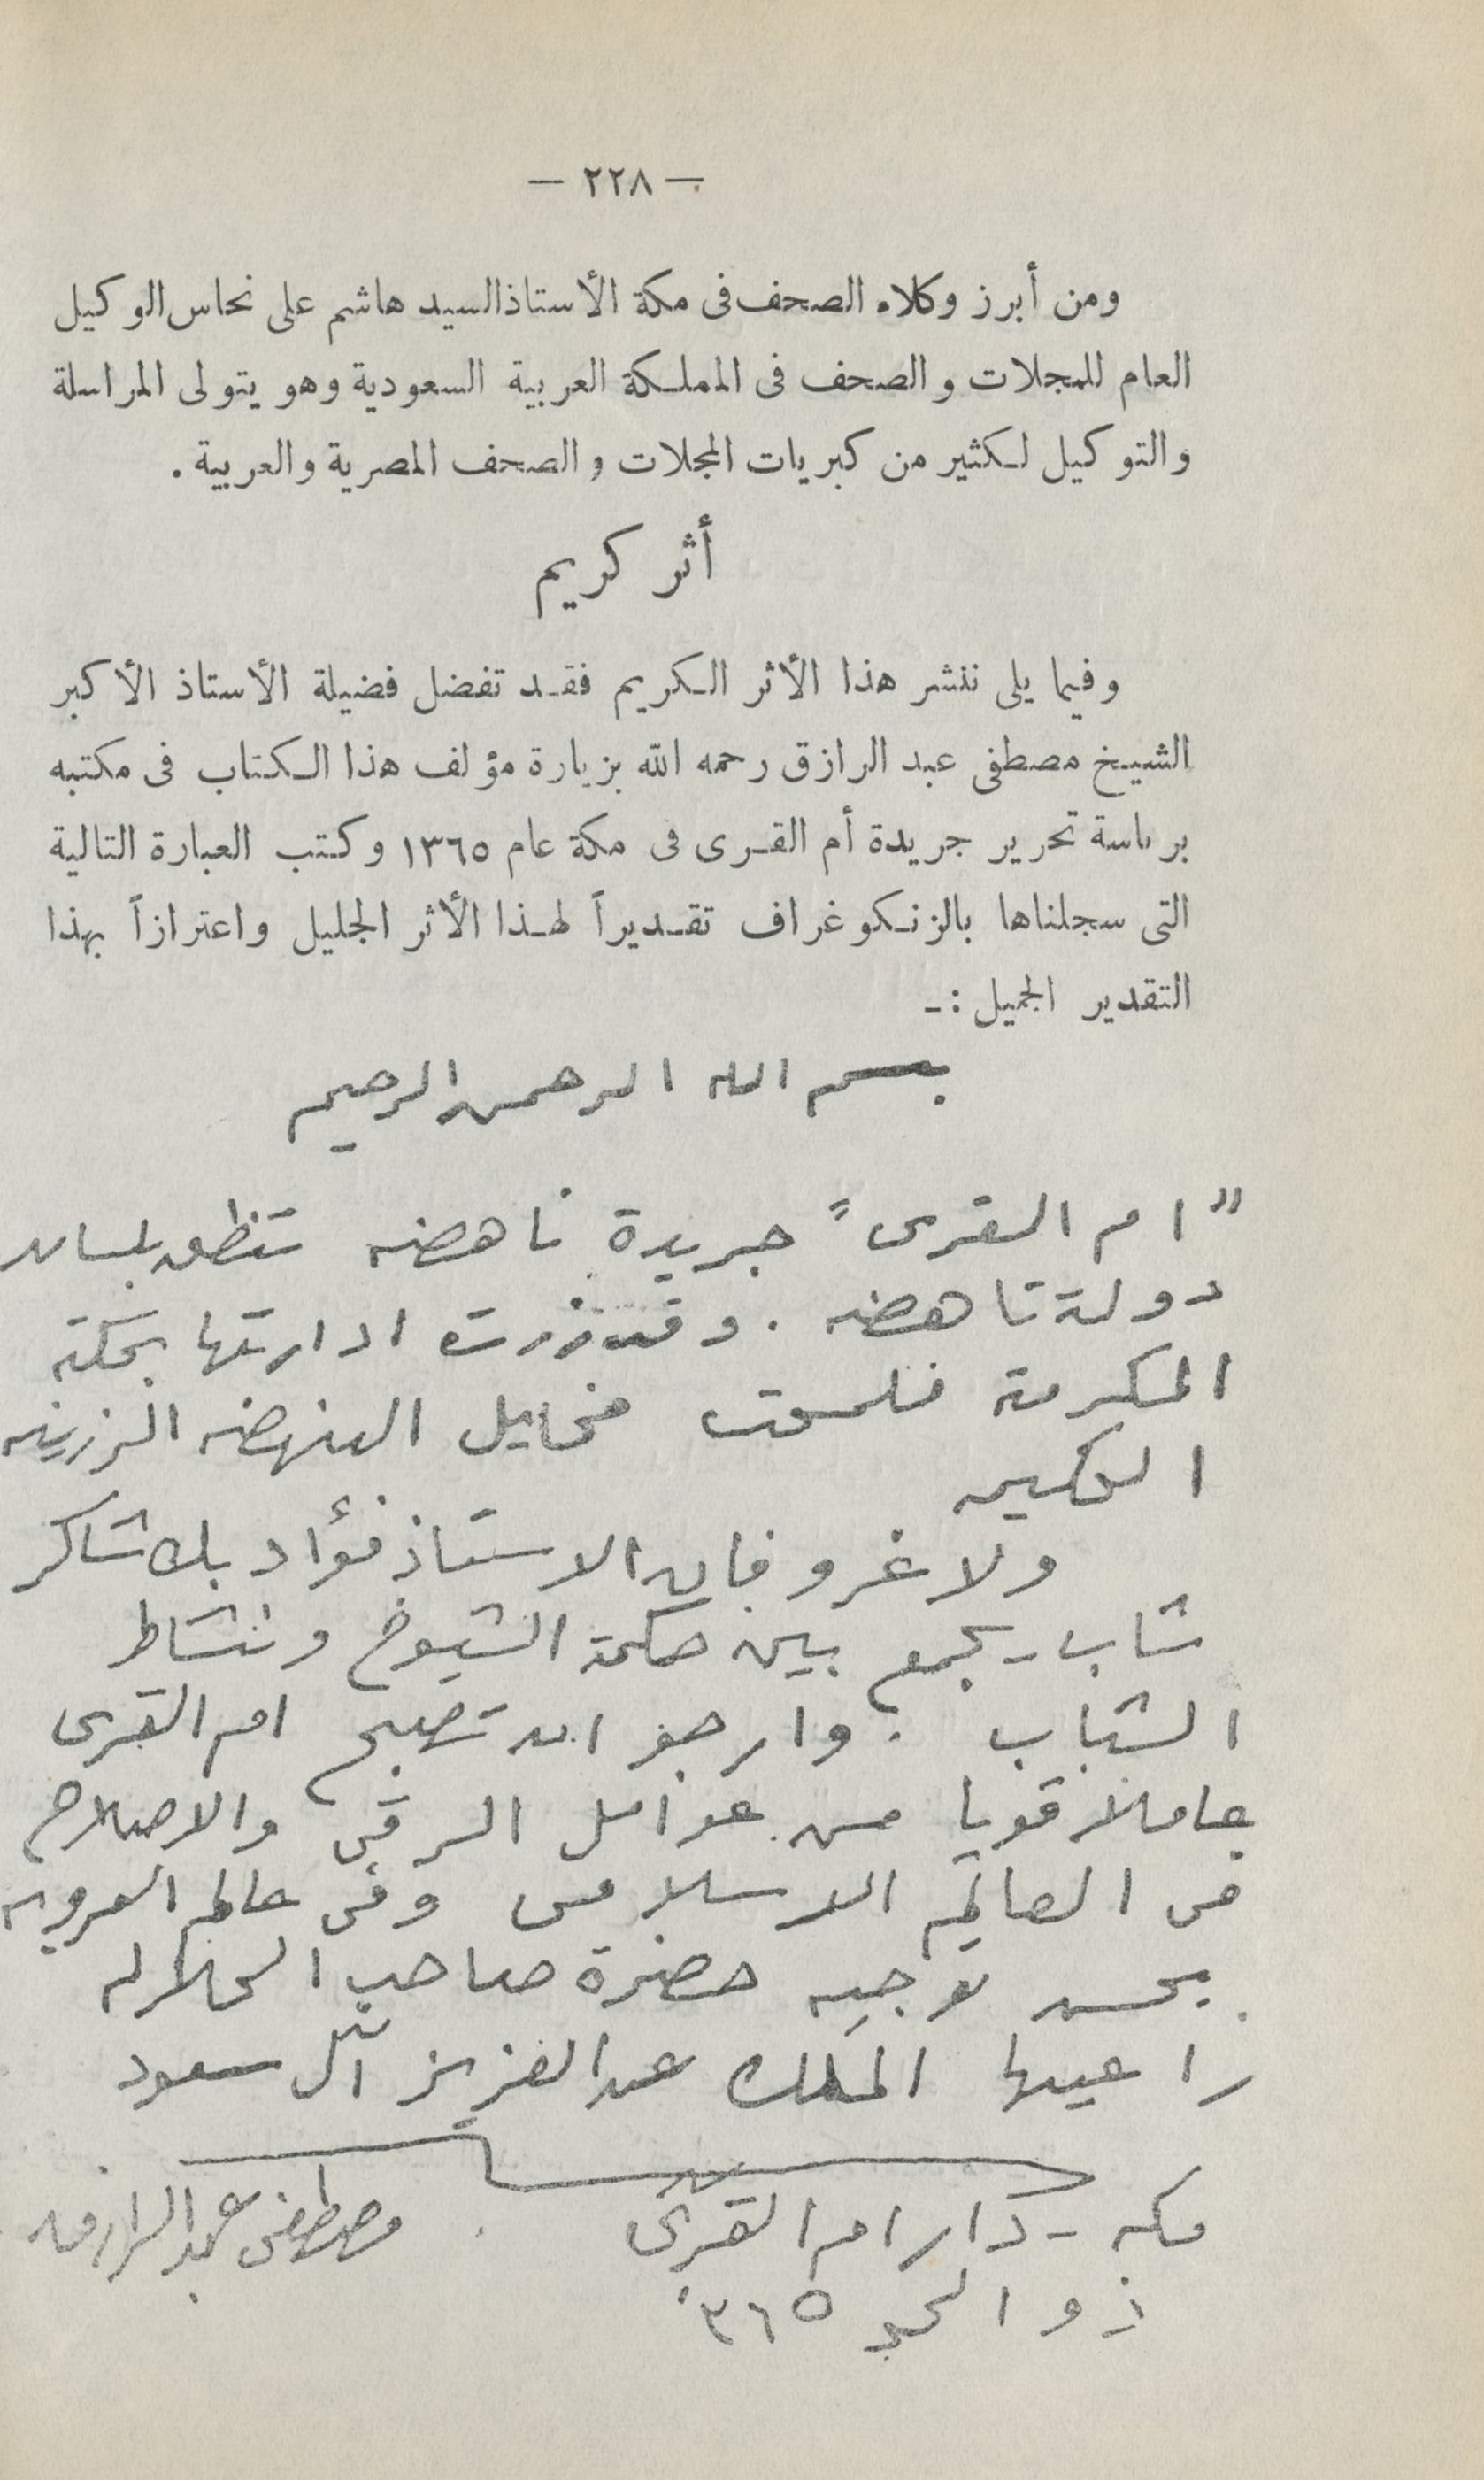 — ٢٢٨ —
ومن أبرز وكلاء الصحف فى مكة الأستاذ السيد هاشم على نحاس الوكيل
العام للمجلات والصحف فى المملكة العربية السعودية وهو يتولى المراسلة
والتوكيل لكثير من كبريات المجلات والصحف المصرية والعربية .
أثر كريم
وفيما يلى ننشر هذا الأثر الكريم فقد تفضل فضيلة الأستاذ الأكبر
الشيخ مصطفى عبد الرازق رحمه الله بزيارة مؤلف هذا الكتاب فى مكتبه
برياسة تحرير جريدة أم القرى فى مكة عام ١٣٦٥ وكتب العبارة التالية
التى سجلناها بالزنكوغراف تقديراً لهذا الأثر الجليل واعتزازاً بهذا
التقدير الجميل : -
بسم الله الرحمن الرحيم
" ام القرى " جريدة ناهضه تنطق بلسان
دولة ناهضه . وقد زرت ادارتها بمكة
المكرمة فلمحت مخايل النهضه الرزينه
الحكيمه
ولا غرو فان الاستاذ فؤاد بك شاكر
شاب يجمع بين حكمة الشيوخ ونشاط
الشباب . وارجو ان تصبح ام القرى
عاملا قويا من عوامل الرقى والاصلاح
فى العالم الاسلامى وفى عالم العروبه
بحسن توجيه حضرة صاحب الجلاله
راعيها الملك عبد العزيز آل سعود
مكه - دار ام القرى
مصطفى عبد الرازق
ذو الحجه ١٣٦٥